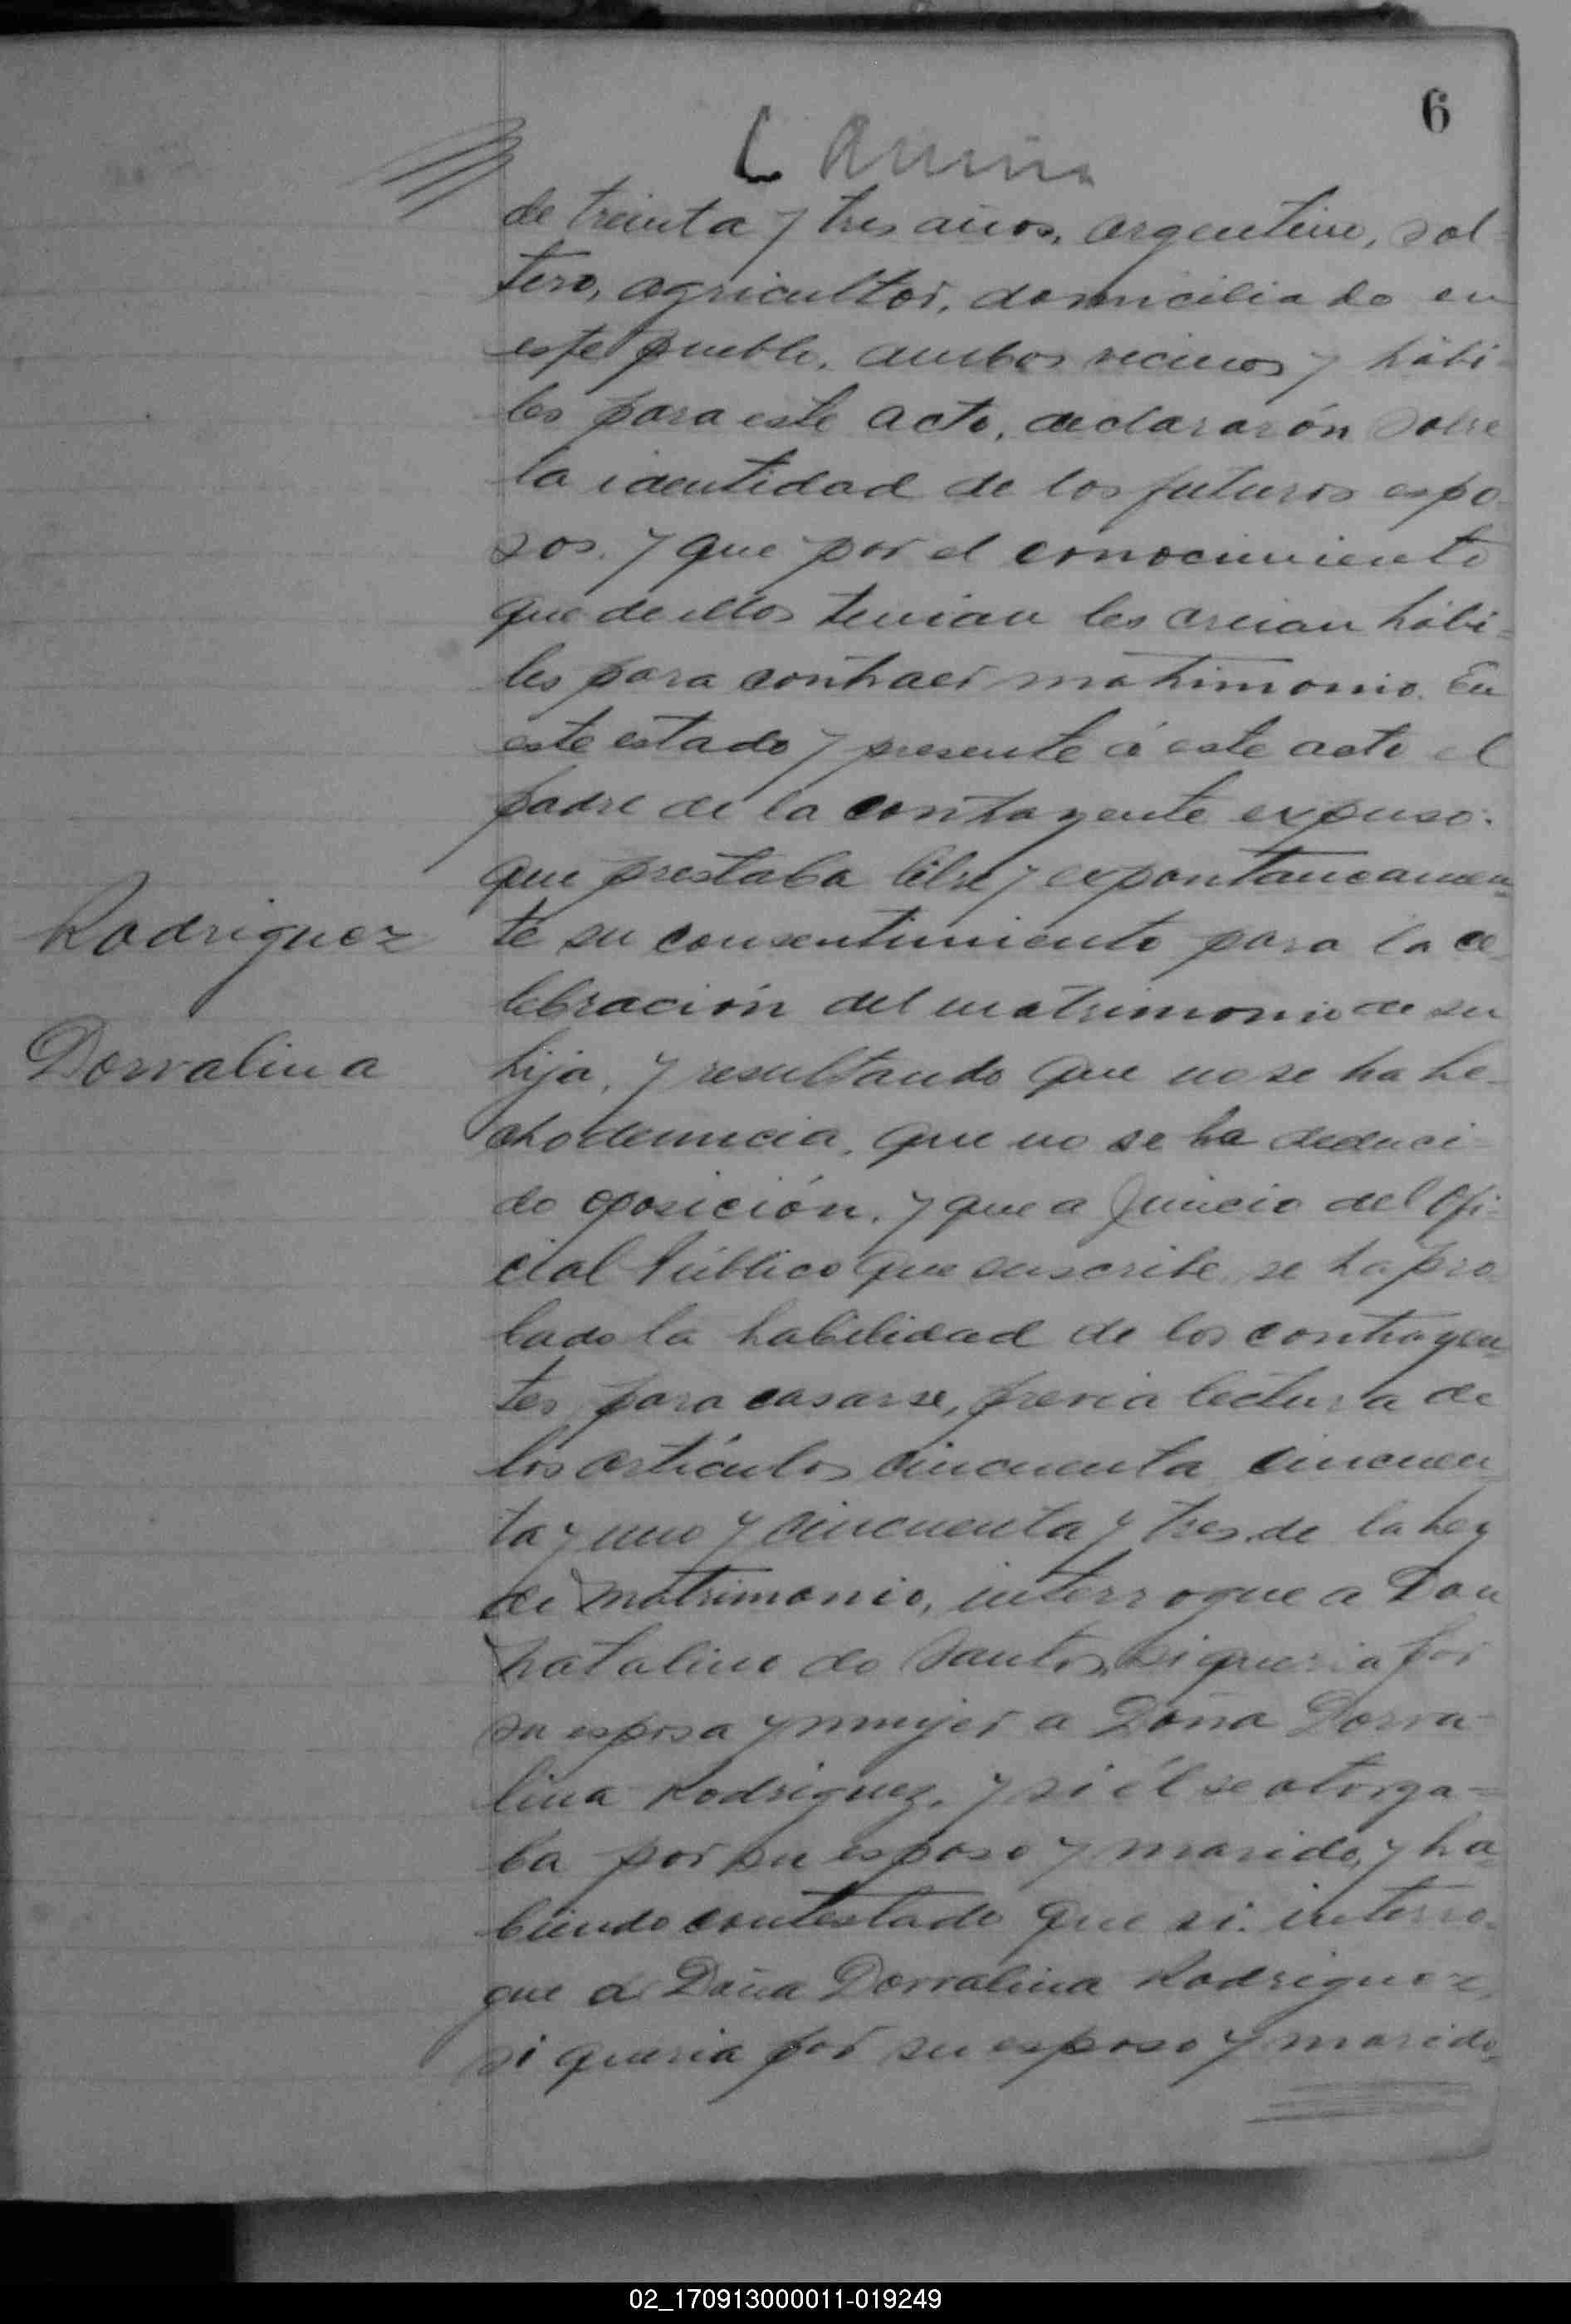 6
de treinta y tres años, argentino, sol-
tero, agricultor, domiciliado en
este pueblo, ambos vecinos y hábi-
les para este acto, declararón sobre
la identidad de los futuros espo-
sos. y que por el conocimiento
que de ellos tenian les creian hábi-
les para contraer matrimonio. En
este estado y presente á este acto el
padre de la contrayente expuso:
que prestaba libre y expontaneamen-
te su consentimiento para la ce-
lebración del matrimonio de su
hija, y resultando que no se ha he-
cho denuncia, que no se ha deduci-
do oposición, y que a juicio del Ofi-
cial Público que suscribe, se ha pro-
bado la habilidad de los contrayen-
tes para casarse, previa lectura de
los artículos cincuenta, cincuen-
ta y uno y cincuenta y tres de la Ley
de Matrimonio, interrogue a Don
Natalino do Santos, si queria por
su esposa y mujer a Doña Dorva-
lina Rodriguez, y si él se otorga-
ba por su esposo y marido, y ha-
biendo contestado que si. interro-
gue a Doña Dorvalina Rodriguez,
si queria por su esposo y marido,
Rodriguez
Dorvalina
02_170913000011-019249